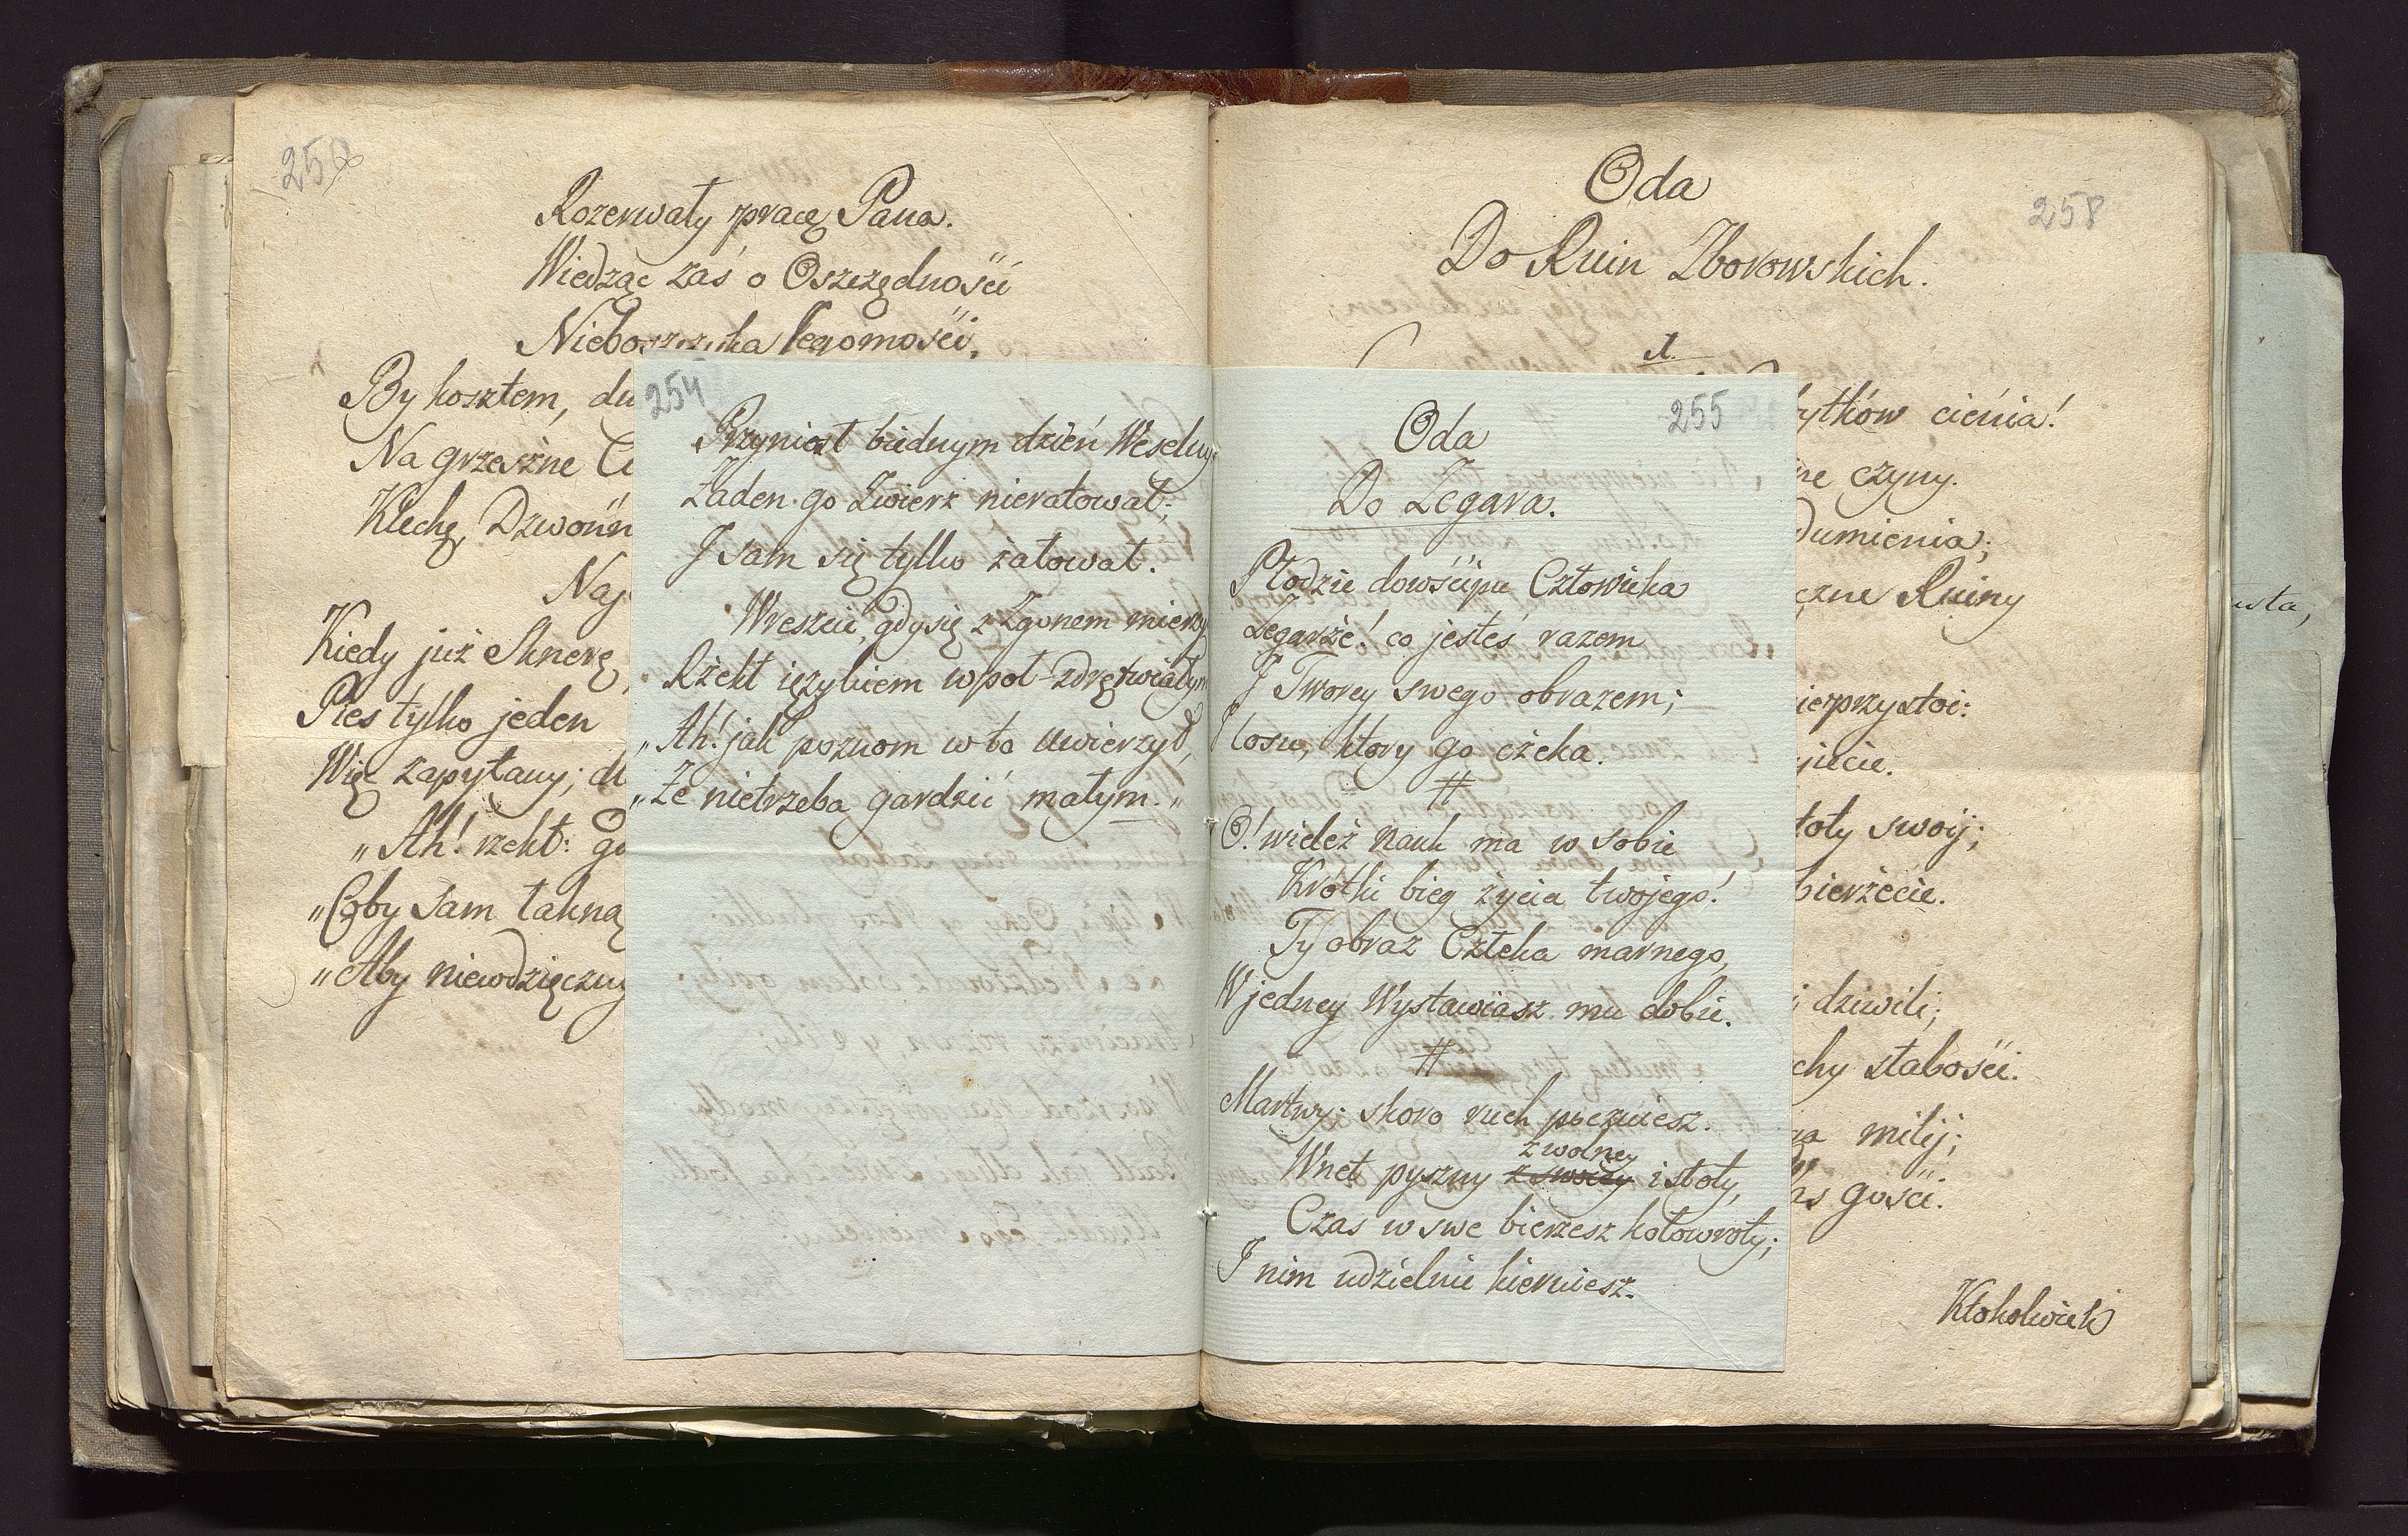 250
Rozerwały pracę Pana.
Wiedząc zaś o Oszczędnośći
Nieboszczyka Jegomośći,
By kosztem, du
Na grzeszne
Klechę, Dzwonn
Naj
Kiedy już Sknerę
Pies tylko jeden
Więc zapytany;
„Ah! rzekł: go
„Coby sam takną
„Aby niewdzięczny
254
Przyniosł biednym dzień Weselny
Żaden go Zwierz nieratował;
I sam się tylko żałował.
Wreszcie, gdy się z Zgonem mierzy
Rżekł ięzykiem wpoł-zdrętwiałym
„Ah! jak poznom w to uwierzył,
„Że nietrzeba gardzić małym.„
255
Oda
Do Zegara.
Płodzie dowśćipu Człowieka
Zegarże! co jesteś razem
I Tworcy swego obrazem;
I losu, ktory go czeka.
#
O! wieleż nauk ma w sobie
Krotki bieg życia twojego!
Ty obraz Człeka marnego,
W jedney Wystawiasz mu dobie.
#
Martwy: skoro ruch poczujesz.
zwolney
Wnet pyszny z swoiey istoty,
Czas w swe bierzesz kołowroty;
I nim udzielnie kierujesz.
258
Oda
Do Ruin Zborowskich.
1.
bytków cieńia!
ne czyny.
dumienia;
czne Ruiny
nieprzystoi:
jecie.
toty swoij;
bierżecie.
i dziwili;
chy słabośći.
milij;
as gośći.
Ktokolwiek
usta,